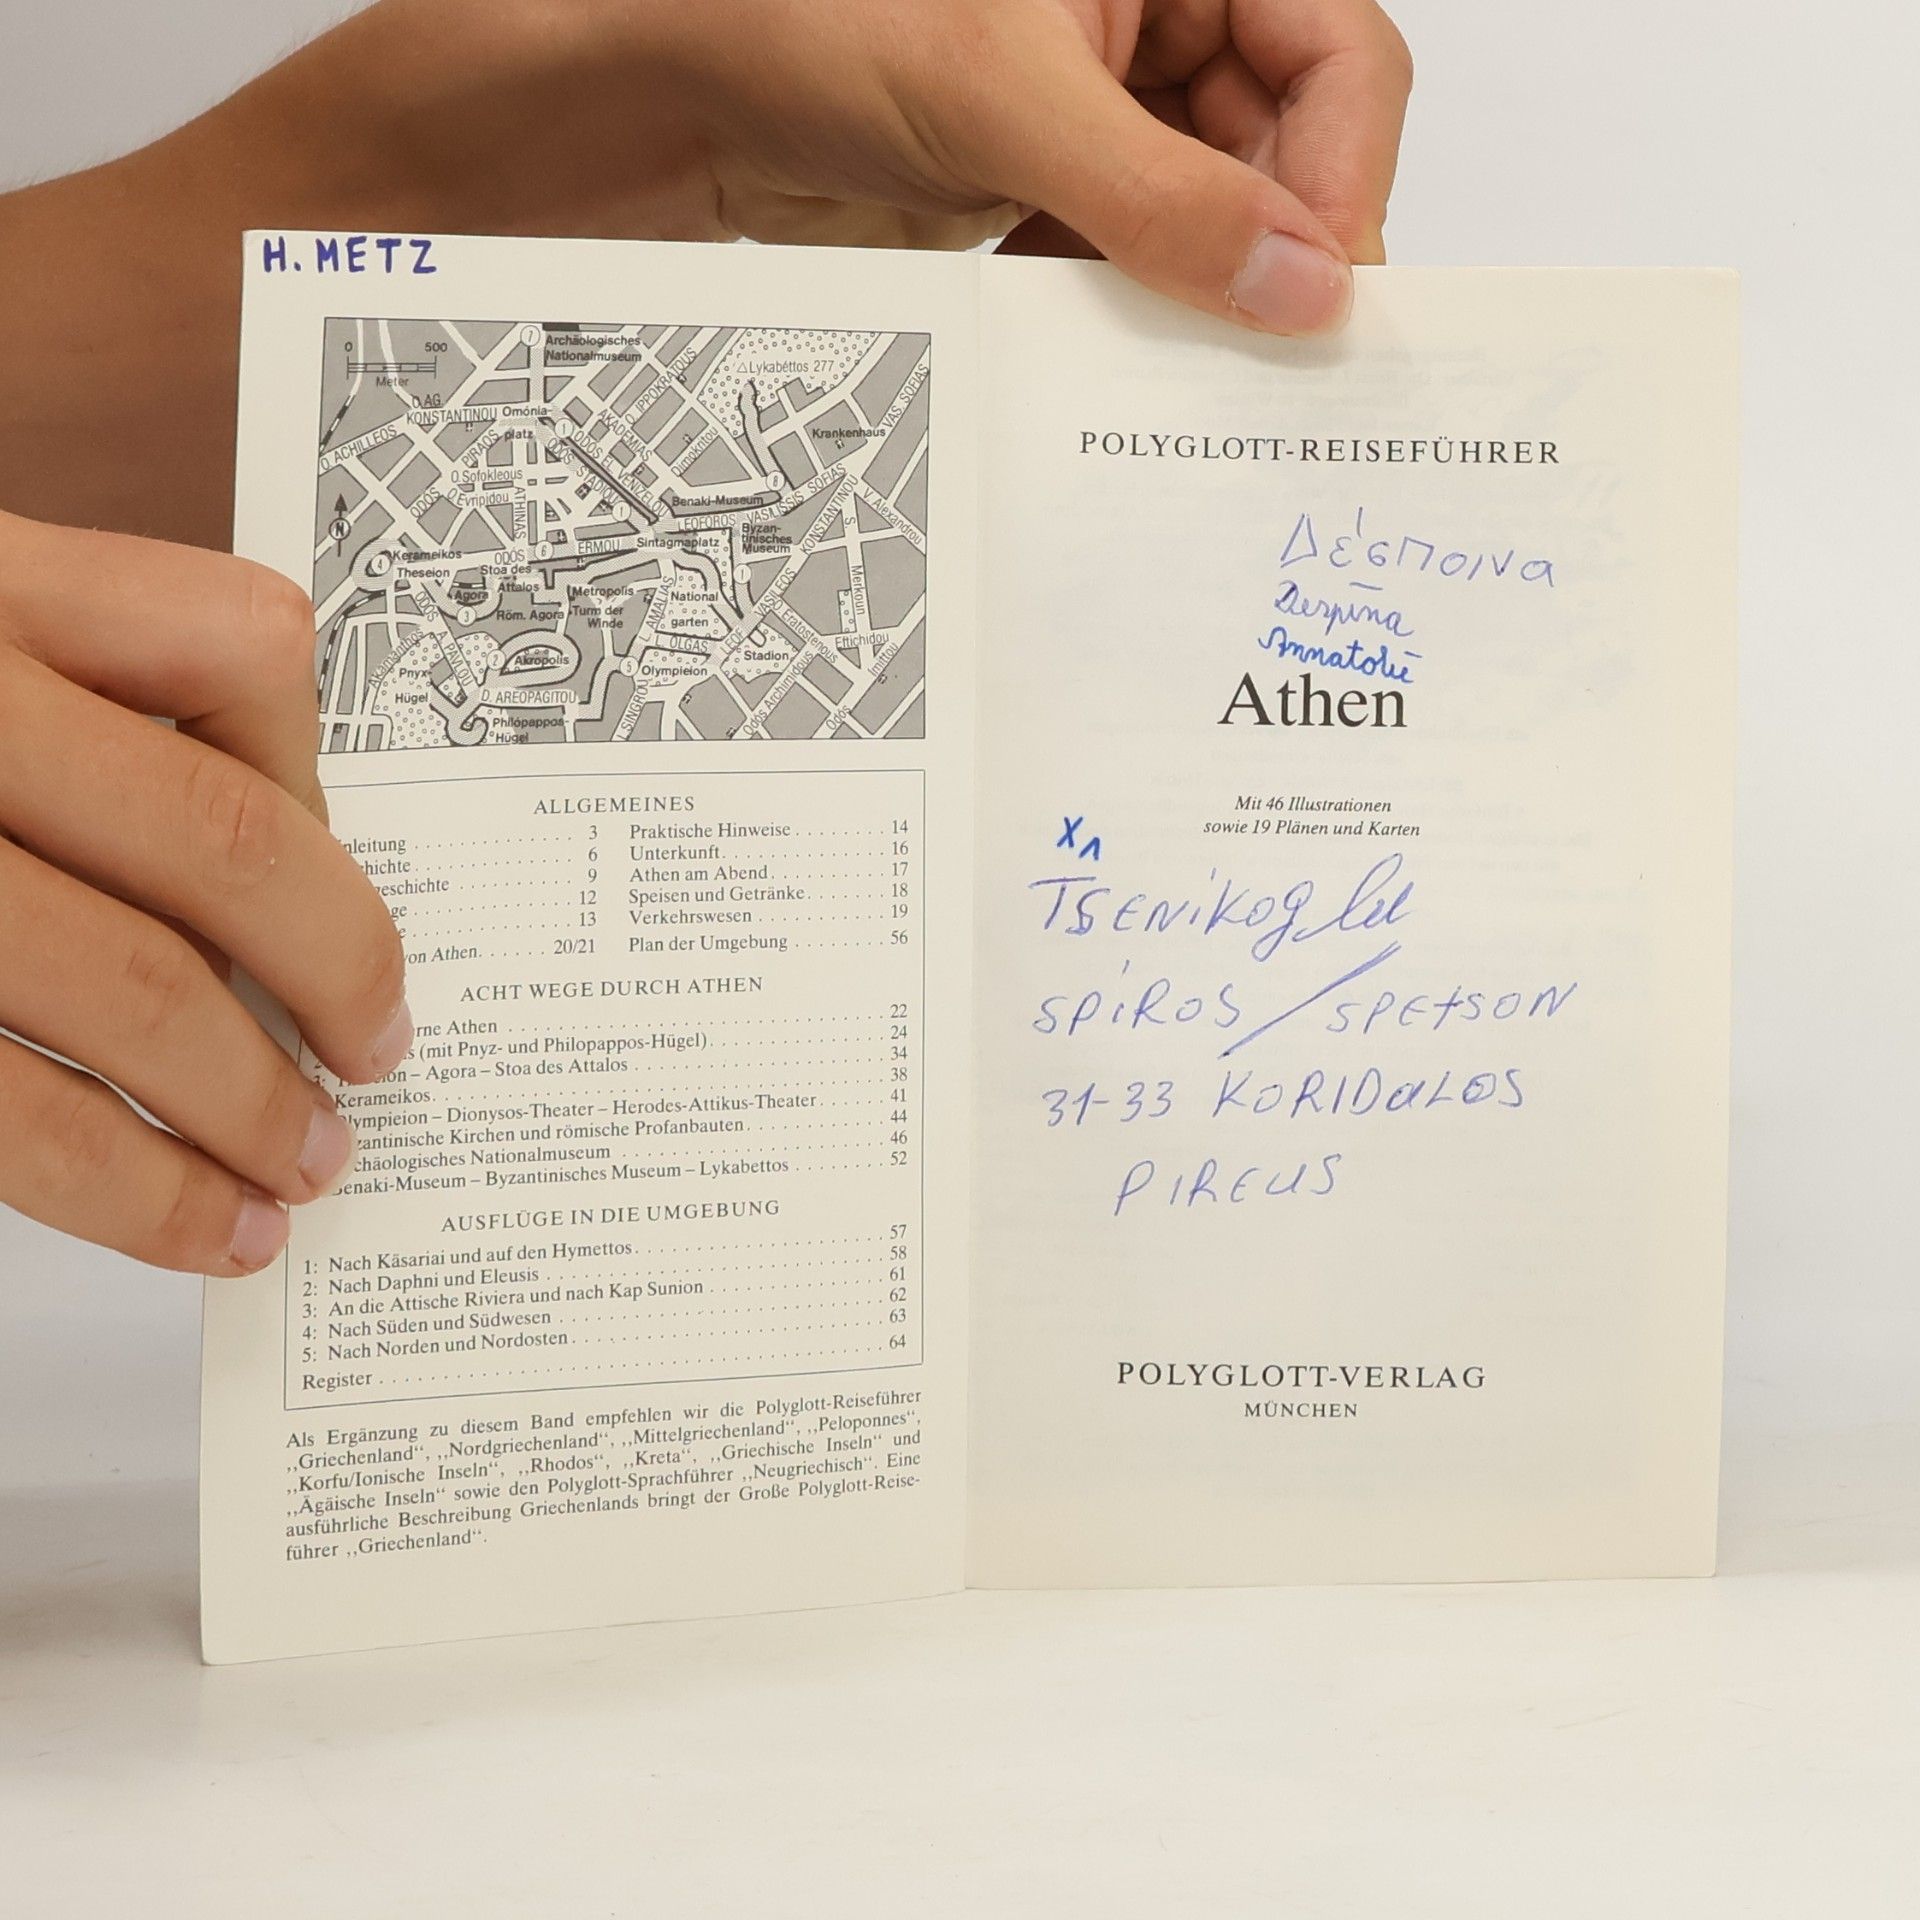 H. METZ
0 500
Meter
7
Archäologisches
Nationalmuseum
△Lykabéttos 277
O. IPPOKRATOUS
VAS. SOFIAS
O. AG.
KONSTANTINOU
Omónia-
platz
1
O. ACHILLEOS
PIRÄOS
AKADEMIAS
Krankenhaus
Dimokritou
ODOS EL. VENIZELOU
ODOS STADIOU
O. Sofokleous
O. Evripidou
ATHINAS
ODOS
8
Benaki-Museum
LEOFOROS VASILISSIS SOFIAS
KONSTANTINOU
V. Alexandrou
N
1
Byzan-
tinisches
Museum
Kerameikos
4
Theseion
ODOS
6
ERMOU
Sintagmaplatz
Stoa des
Attalos
Agora
3
Röm. Agora
Metropolis
Turm der
Winde
L. AMALIAS
National-
garten
1
VASILEOS
LEOF.
Merkouri
O. Eratosthenous
Eftichidou
Imittou
ODOS A. PAVLOU
Akamanthos
Pnyx-
Hügel
2
Akropolis
L. OLGAS
Stadion
5
Olympieion
D. AREOPAGITOU
Philopappos-
Hügel
L. SINGROU
Odos Archimidous
Odos
ALLGEMEINES
nleitung . . . 3
hichte . . . 6
eschichte . . . 9
ge . . . 12
e . . . 13
on Athen . . . 20/21
Praktische Hinweise . . . 14
Unterkunft . . . 16
Athen am Abend . . . 17
Speisen und Getränke . . . 18
Verkehrswesen . . . 19
Plan der Umgebung . . . 56
ACHT WEGE DURCH ATHEN
rne Athen . . . 22
s (mit Pnyz- und Philopappos-Hügel) . . . 24
ion – Agora – Stoa des Attalos . . . 34
Kerameikos . . . 38
lympieion – Dionysos-Theater – Herodes-Attikus-Theater . . . 41
zantinische Kirchen und römische Profanbauten . . . 44
chäologisches Nationalmuseum . . . 46
enaki-Museum – Byzantinisches Museum – Lykabettos . . . 52
AUSFLÜGE IN DIE UMGEBUNG
1: Nach Käsariai und auf den Hymettos . . . 57
2: Nach Daphni und Eleusis . . . 58
3: An die Attische Riviera und nach Kap Sunion . . . 61
4: Nach Süden und Südwesen . . . 62
5: Nach Norden und Nordosten . . . 63
Register . . . 64
Als Ergänzung zu diesem Band empfehlen wir die Polyglott-Reiseführer
„Griechenland“, „Nordgriechenland“, „Mittelgriechenland“, „Peloponnes“,
„Korfu/Ionische Inseln“, „Rhodos“, „Kreta“, „Griechische Inseln“ und
„Ägäische Inseln“ sowie den Polyglott-Sprachführer „Neugriechisch“. Eine
ausführliche Beschreibung Griechenlands bringt der Große Polyglott-Reise-
führer „Griechenland“.
POLYGLOTT-REISEFÜHRER
Δέσποινα
Despina
Annatolie
Athen
Mit 46 Illustrationen
sowie 19 Plänen und Karten
X1
TSENiKOglu
SPiROS / SPETSON
31-33 KORIDaLOS
PIREUS
POLYGLOTT-VERLAG
MÜNCHEN